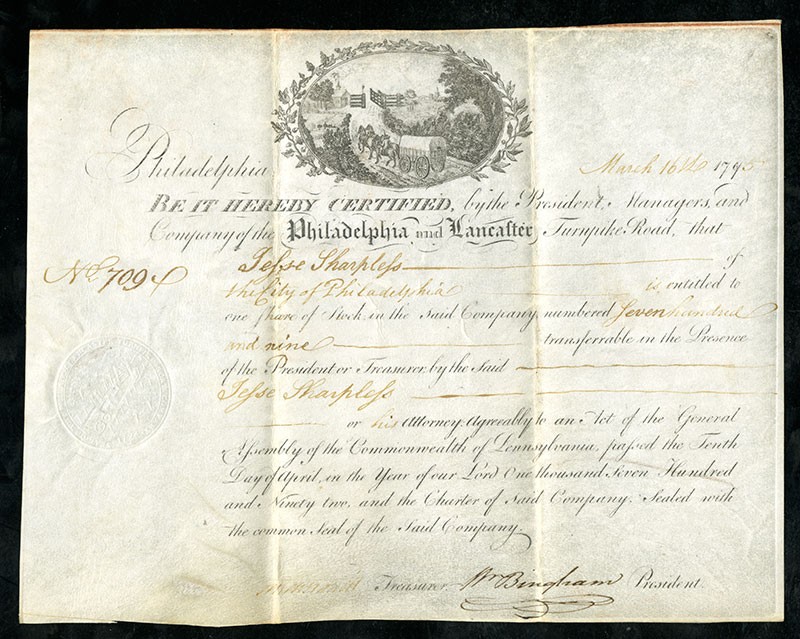 Philadelphia March 16th 1795
BE IT HEREBY CERTIFIED, by the President, Managers, and
Company of the Philadelphia and Lancaster Turnpike Road, that
No. 709 Jeſse Sharpleſs of
the City of Philadelphia is entitled to
one ſhare of Stock, in the said Company, numbered Seven hundred
and nine transferrable in the Presence
of the President or Treasurer, by the Said
Jeſse Sharpleſs
or his Attorney. Agreeably to an Act of the General
Aſsembly of the Commonwealth of Pennsylvania, paſsed the Tenth
Day of April, in the Year of our Lord One thousand Seven Hundred
and Ninety two, and the Charter of Said Company. Sealed with
the common Seal of the Said Company.
Treasurer. Wm Bingham President.